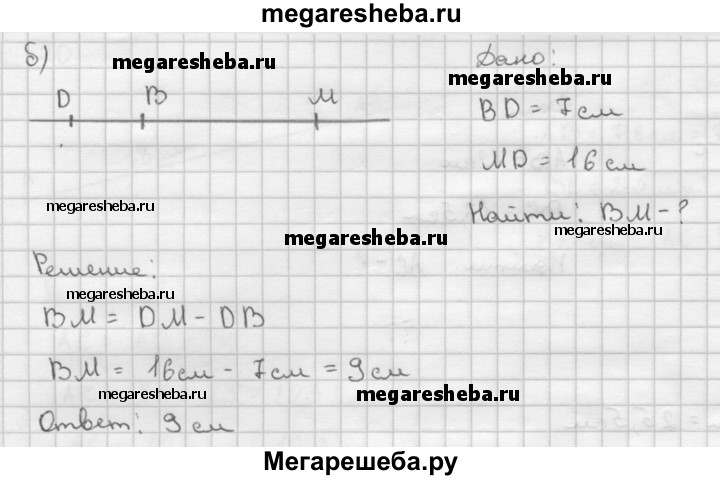 megaresheba.ru
б)
megaresheba.ru
Дано:
megaresheba.ru
D B M
BD = 7см
MD = 16см
megaresheba.ru
Найти: BM - ?
megaresheba.ru
megaresheba.ru
Решение:
megaresheba.ru
BM = DM - DB
BM = 16см - 7см = 9см
megaresheba.ru
megaresheba.ru
Ответ: 9см
Мегарешеба.ру